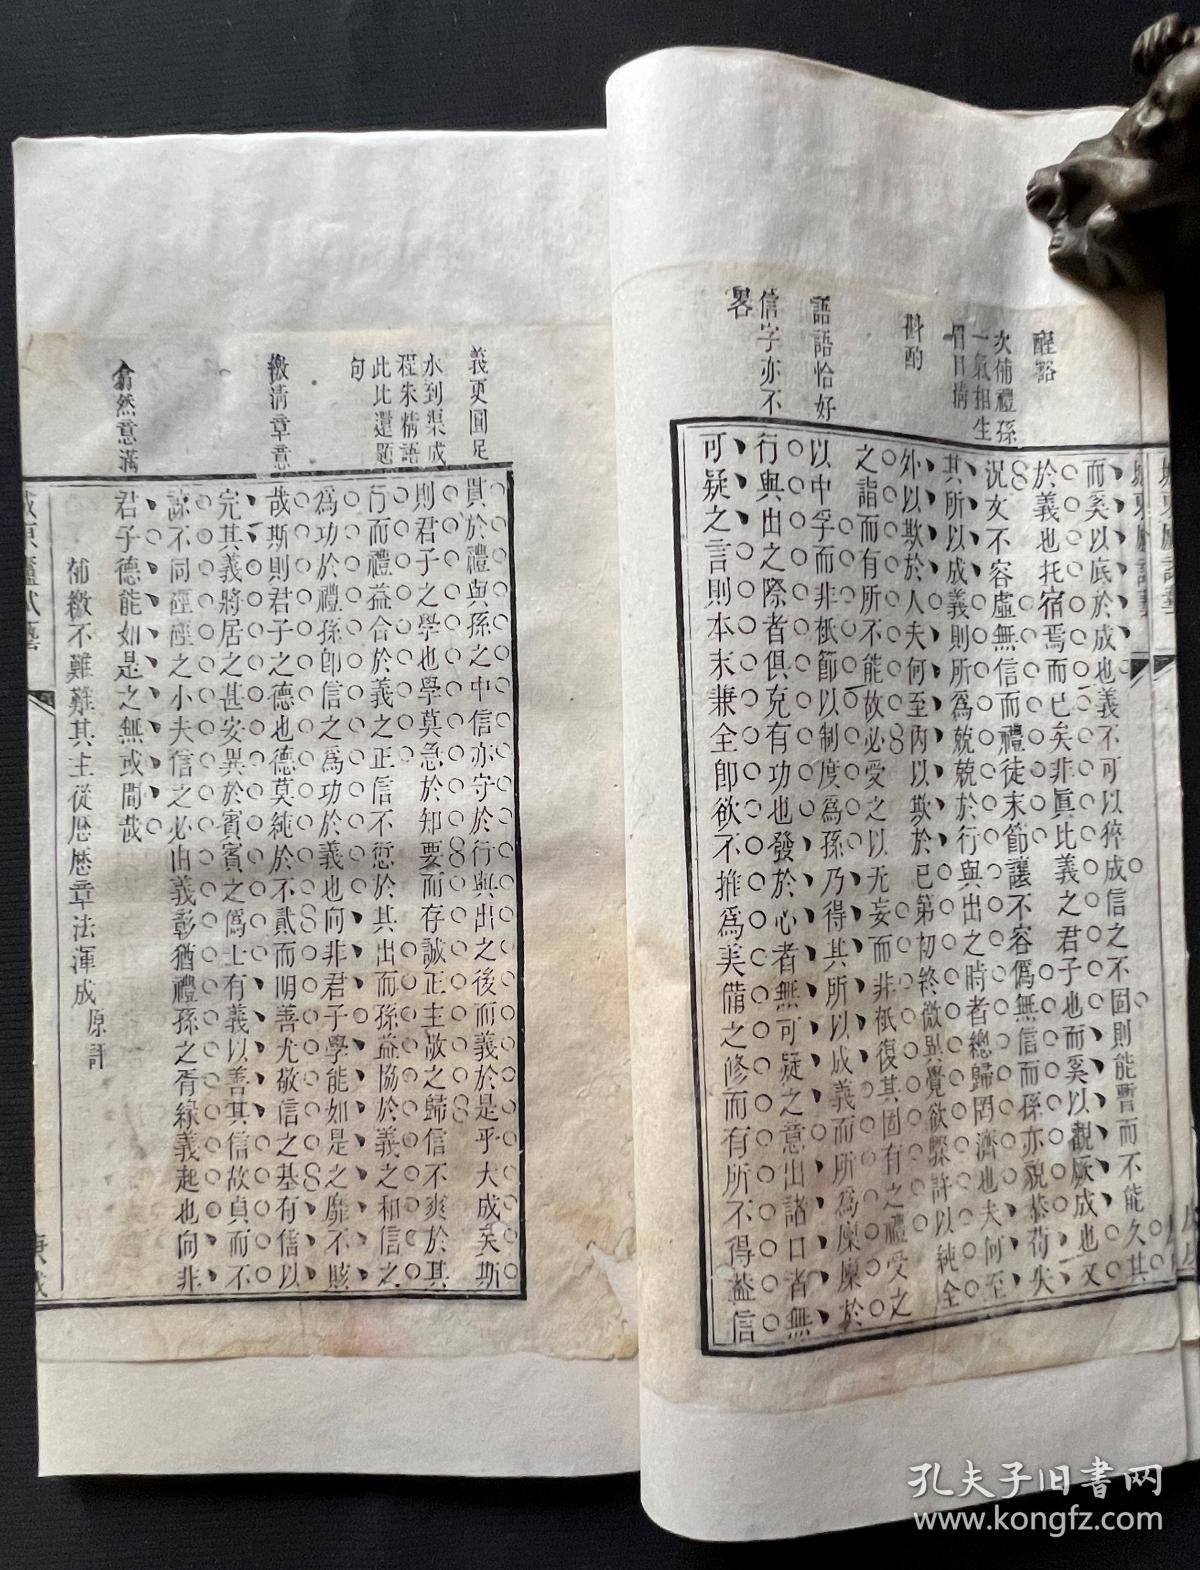 醒豁
次補禮孫
一氣相生
眉目清
斟酌
語語恰好
信字亦不
畧
而奚以底於成也義不可以猝成信之不固則能暫而不能久其
於義也托宿焉而已矣非眞比義之君子也而奚以觀厥成也又
況文不容虛無信而禮徒末節讓不容僞無信而孫亦貌恭苟失
其所以成義則所爲兢兢於行與出之時者總歸罔濟也夫何至
外以欺於人夫何至內以欺於己第初終微異覺欲與許以純全
之詣而有所不能故必受之以无妄而非祇復其固有之禮受之
以中孚而非祇節以制度爲孫乃得其所以成義而所爲凜凜於
行與出之際者俱克有功也發於心者無可疑之意出諸口者無
可疑之言則本末兼全即欲不推爲美備之修而有所不得益信
義更圓足
水到渠成
程朱精語
此比還題
句
繳清章意
翕然意滿
貫於禮與孫之中信亦守於行與出之後而義於是乎大成矣斯
則君子之學也學莫急於知要而存誠正主敬之歸信不爽於其
行而禮益合於義之正信不愆於其出而孫益協於義之和信之
爲功於禮孫卽信之爲功於義也向非君子學能如是之靡不賅
哉斯則君子之德也德莫純於不貳而明善尤敬信之基有信以
完其義將居之甚安異於賓賓之僞士有義以善其信故貞而不
諒不同硜硜之小夫信之必由義彰猶禮孫之胥緣義起也向非
君子德能如是之無或間哉
補繳不難難其主從歷歷章法渾成 原評
孔夫子旧书网
www.kongfz.com